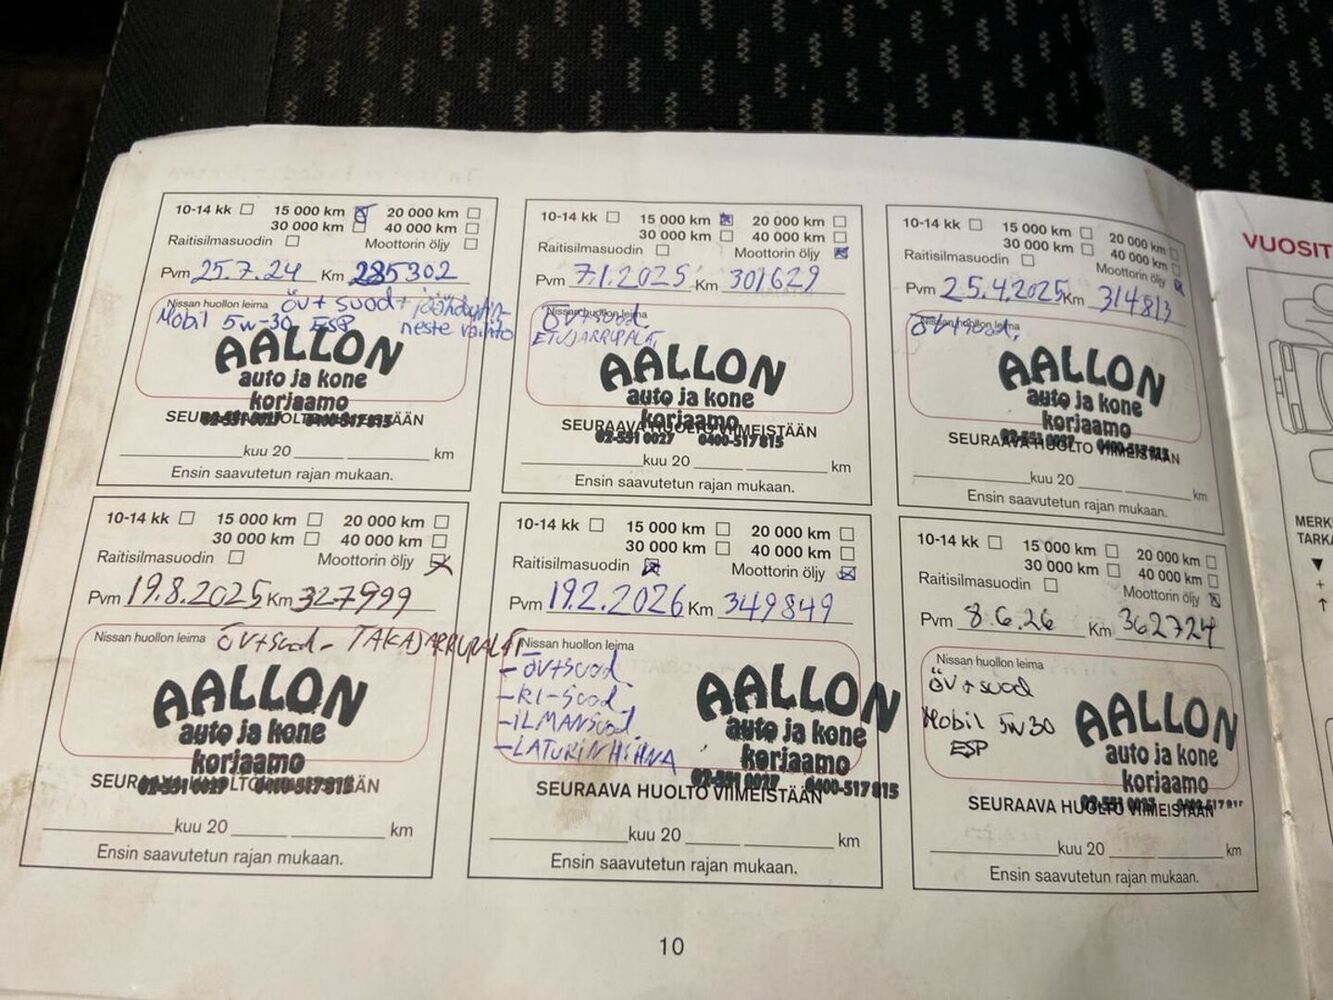 10-14 kk 15 000 km 20 000 km
30 000 km 40 000 km
Raitisilmasuodin Moottorin öljy
Pvm 25.7.24 Km 285302
Nissan huollon leima öv+suod+jäähdytin-
Mobil 5w-30 ESP neste vaihto
AALLON
auto ja kone
korjaamo
02-531 0027 0400-517 815
SEURAAVA HUOLTO VIIMEISTÄÄN
kuu 20 km
Ensin saavutetun rajan mukaan.
10-14 kk 15 000 km 20 000 km
30 000 km 40 000 km
Raitisilmasuodin Moottorin öljy
Pvm 7.1.2025 Km 301629
Nissan huollon leima
öv+suod.
ETUJARRUPALAT
AALLON
auto ja kone
korjaamo
SEURAAVA HUOLTO VIIMEISTÄÄN
02-531 0027 0400-517 815
kuu 20 km
Ensin saavutetun rajan mukaan.
10-14 kk 15 000 km 20 000 km
30 000 km 40 000 km
Raitisilmasuodin Moottorin öljy
Pvm 25.4.2025 Km 314813
Nissan huollon leima
öv+suod.
AALLON
auto ja kone
korjaamo
02-531 0027 0400-517 815
SEURAAVA HUOLTO VIIMEISTÄÄN
kuu 20 km
Ensin saavutetun rajan mukaan.
10-14 kk 15 000 km 20 000 km
30 000 km 40 000 km
Raitisilmasuodin Moottorin öljy
Pvm 19.8.2025 Km 327999
Nissan huollon leima öv+suod - TAKAJARRUPALAT
AALLON
auto ja kone
korjaamo
SEURAAVA HUOLTO VIIMEISTÄÄN
02-531 0027 0400-517 815
kuu 20 km
Ensin saavutetun rajan mukaan.
10-14 kk 15 000 km 20 000 km
30 000 km 40 000 km
Raitisilmasuodin Moottorin öljy
Pvm 19.2.2026 Km 349849
Nissan huollon leima
-öv+suod
-RI-suod.
-iLMANSuod.
-LATURIN HIHNA
AALLON
auto ja kone
korjaamo
02-531 0027 0400-517 815
SEURAAVA HUOLTO VIIMEISTÄÄN
kuu 20 km
Ensin saavutetun rajan mukaan.
10-14 kk 15 000 km 20 000 km
30 000 km 40 000 km
Raitisilmasuodin Moottorin öljy
Pvm 8.6.26 Km 362724
Nissan huollon leima
öv+suod
Mobil 5w30
ESP
AALLON
auto ja kone
korjaamo
02-531 0027 0400-517 815
SEURAAVA HUOLTO VIIMEISTÄÄN
kuu 20 km
Ensin saavutetun rajan mukaan.
10
VUOSIT
MERK
TARKA